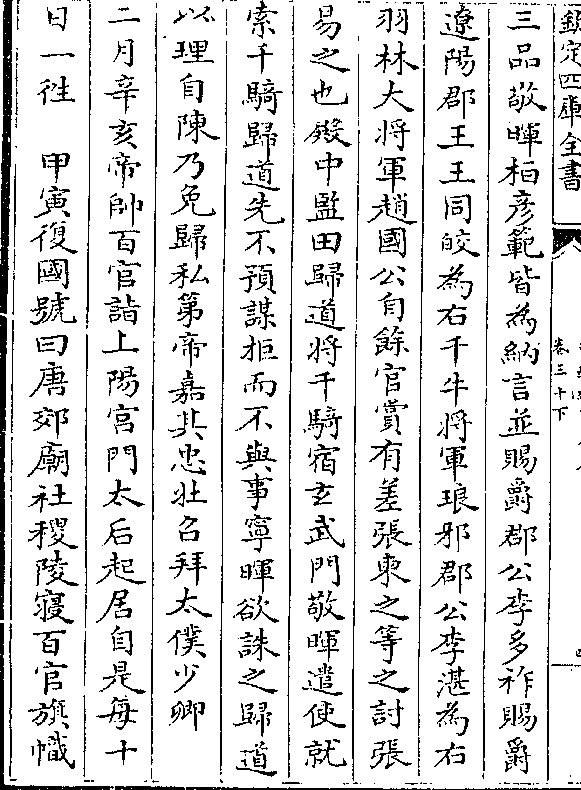 欽定四庫全書
卷三十下
三品敬暉桓彦範皆為納言並賜爵郡公李多祚賜爵
遼陽郡王王同皎為右千牛將軍琅邪郡公李湛為右
羽林大將軍趙國公自餘官賞有差張柬之等之討張
易之也殿中監田歸道將千騎宿玄武門敬暉遣使就
索千騎歸道先不預謀拒而不與事寧暉欲誅之歸道
以理自陳乃免歸私第帝嘉其忠壯召拜太僕少卿
二月辛亥帝帥百官詣上陽宮門太后起居自是每十
日一徃　甲寅復國號曰唐郊廟社稷陵寢百官旗幟